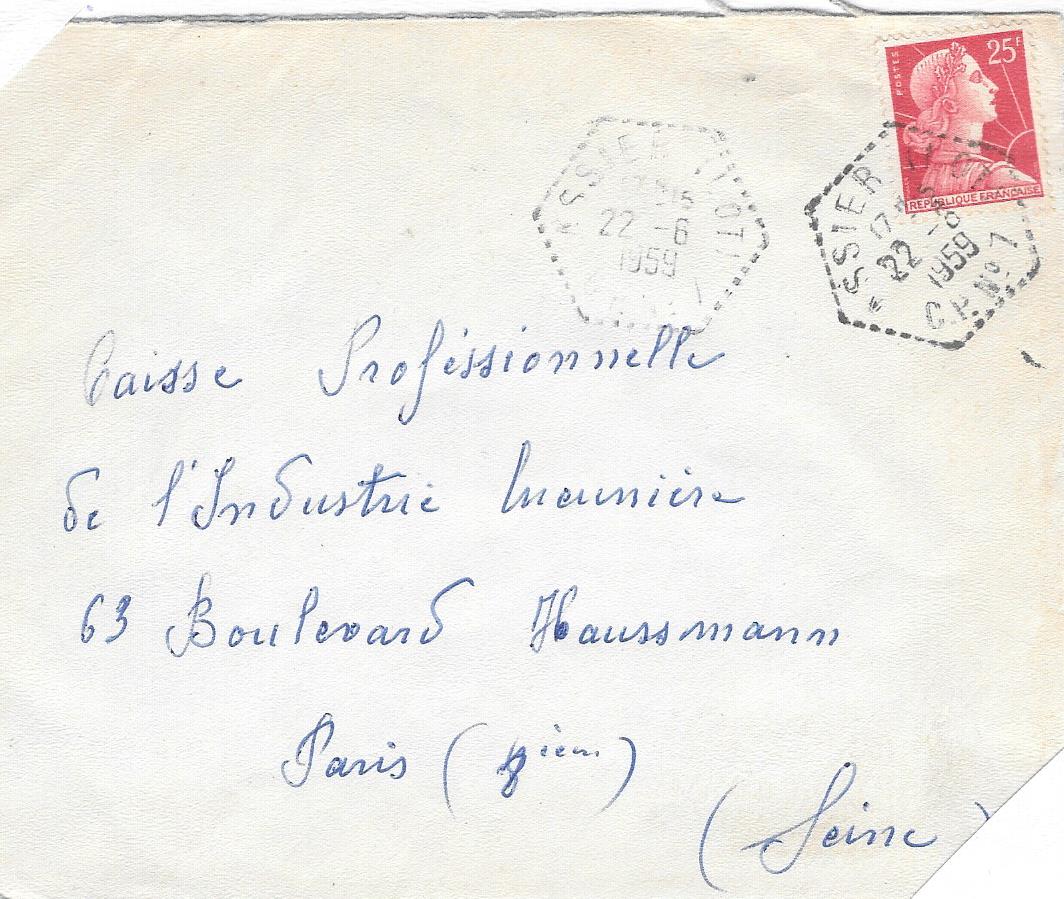 25F
POSTES
REPUBLIQUE FRANÇAISE
17
22 -6
1959
C.P. N° 7
22 -6
1959
Caisse Proféssionnelle
de l'Industrie meunière
63 Boulevard Haussmann
Paris (8ièm)
(Seine)